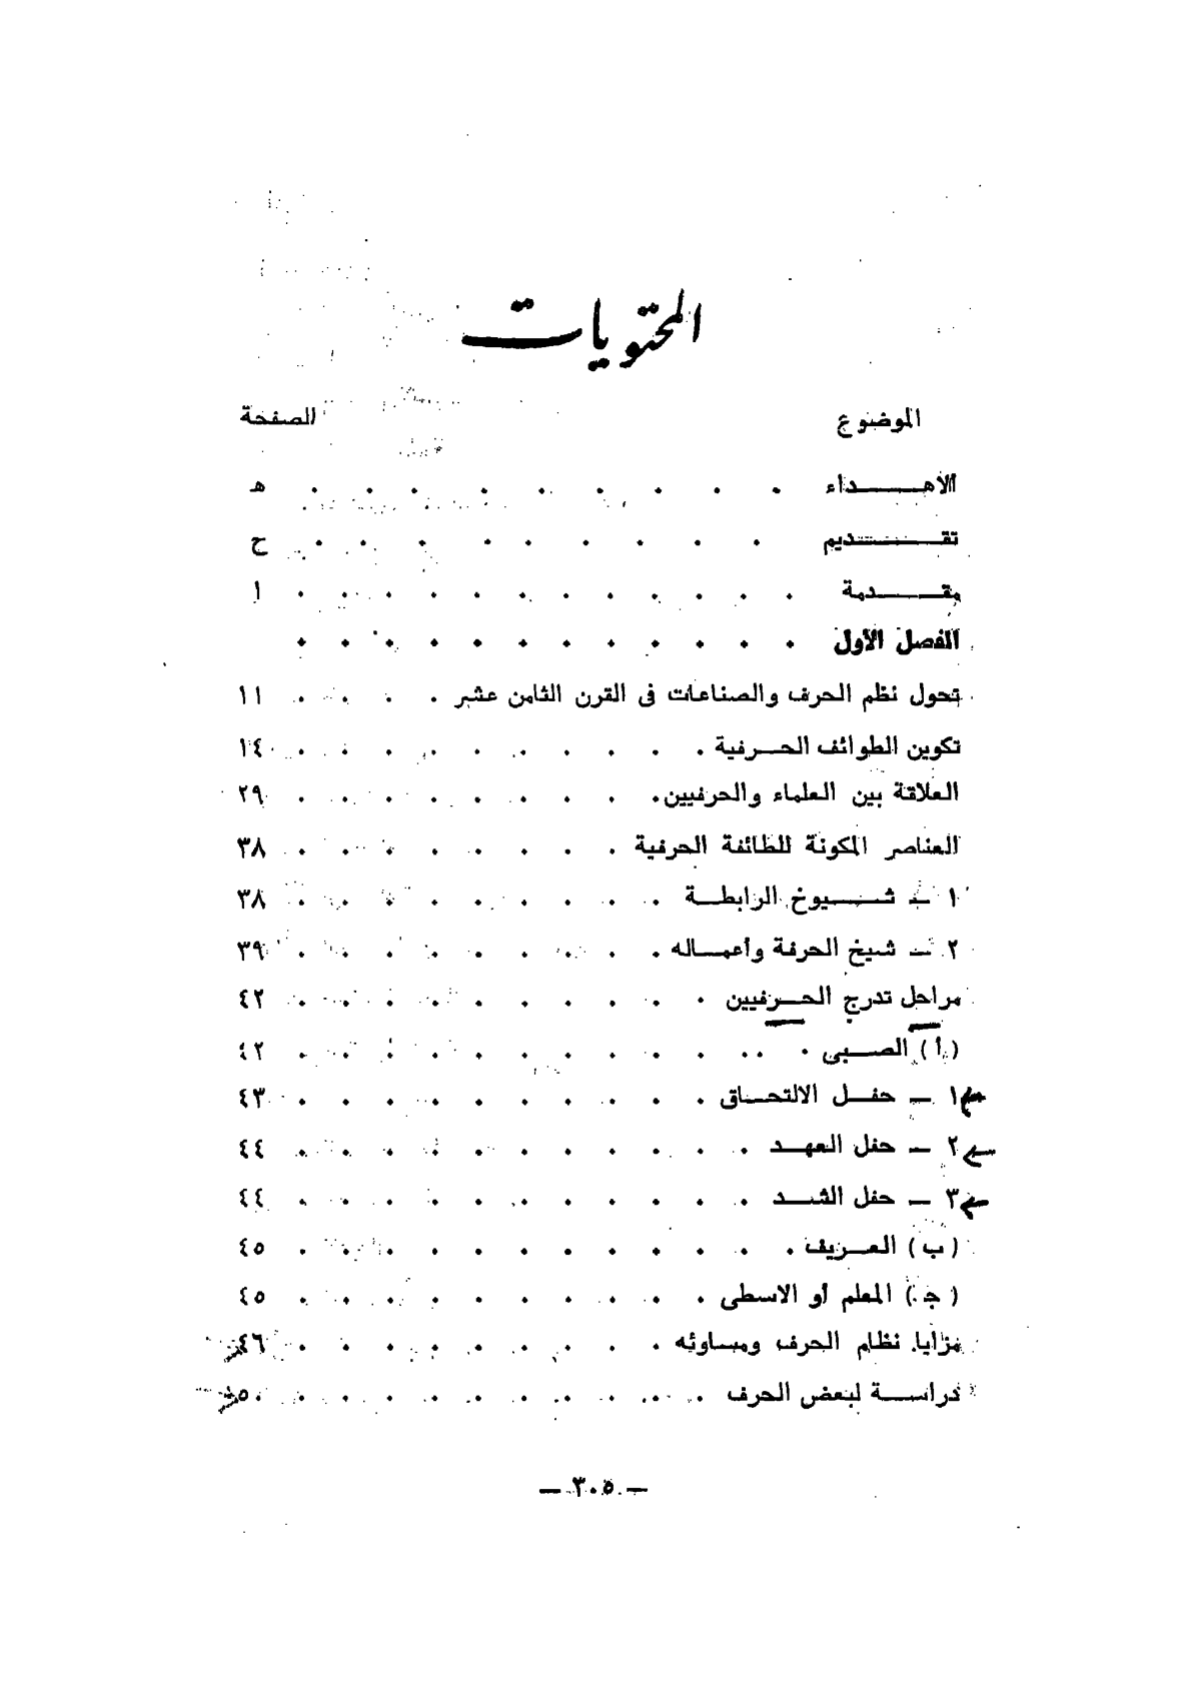 المحتويات
الموضوع الصفحة
الأهـــداء . . . . . . . . . هـ
تقـــديم . . . . . . . . . ح
مقـــدمة . . . . . . . . . . . . ا
الفصل الأول . . . . . . . . . . . .
تحول نظم الحرف والصناعات فى القرن الثامن عشر . . . . ١١
تكوين الطوائف الحـــرفية . . . . . . . . . . ١٤
العلاقة بين العلماء والحرفيين . . . . . . . . . ٢٩
العناصر المكونة للطائفة الحرفية . . . . . . . . ٣٨
١ ــ شـــيوخ الرابطــة . . . . . . . . . ٣٨
٢ ــ شيخ الحرفة وأعمــاله . . . . . . . . . ٣٩
مراحل تدرج الحــرفيين . . . . . . . . . . ٤٢
( أ ) الصــبى . . . . . . . . . . . . . ٤٢
١ ــ حفــل الالتحــاق . . . . . . . . . . ٤٣
٢ ــ حفل العهــد . . . . . . . . . . . ٤٤
٣ ــ حفل الشــد . . . . . . . . . . . ٤٤
( ب ) العــريف . . . . . . . . . . . . ٤٥
( جـ ) المعلم أو الاسطى . . . . . . . . . . ٤٥
مزايا نظام الحرف ومساوئه . . . . . . . . . ٤٦
دراســة لبعض الحرف . . . . . . . . . . ٥٠
ــ ٣٠٥ ــ